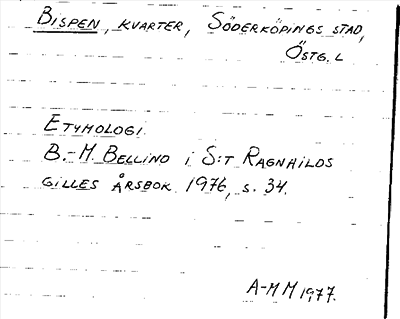 BISPEN, KVARTER, SÖDERKÖPINGS STAD,
ÖSTG. L
ETYMOLOGI.
B.-M. BELLIND i S:T RAGNHILDS
GILLES ÅRSBOK 1976, s. 34.
A-MM 1977.